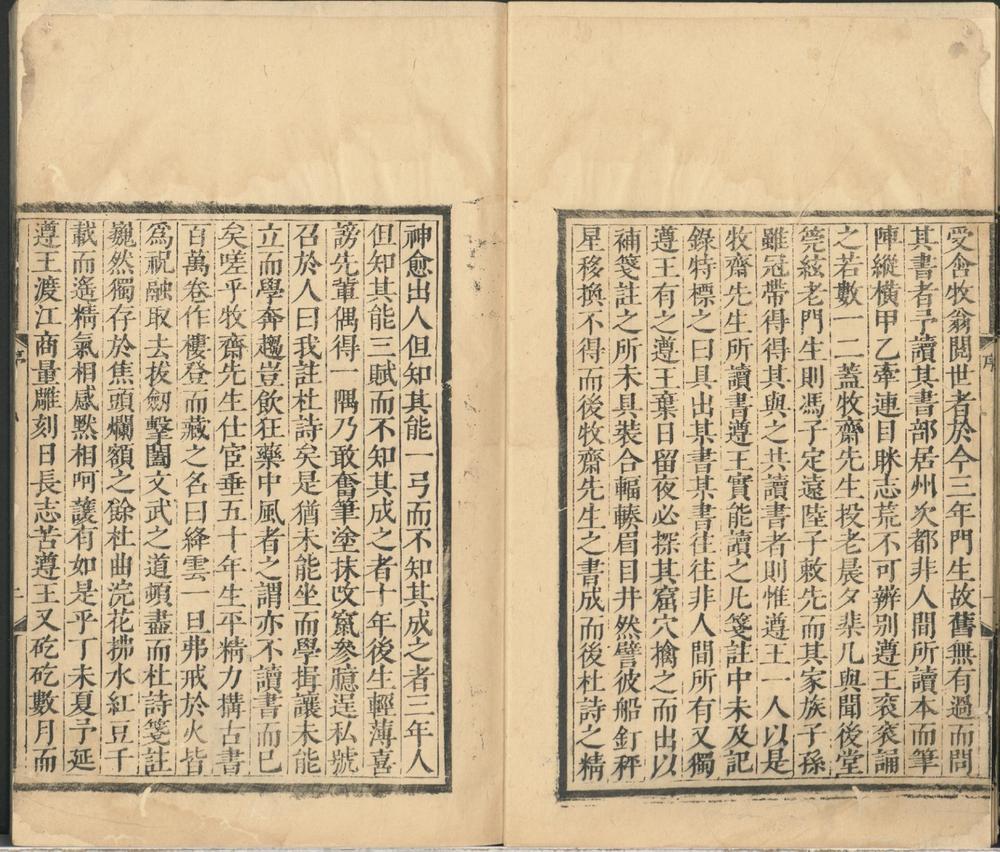 受舍牧翁閱世者於今三年門生故舊無有過而問
其書者予讀其書部居州次都非人間所讀本而筆
陣縱橫甲乙牽連目眯志荒不可辨別遵王衮衮誦
之若數一二蓋牧齋先生投老晨夕棐几與聞後堂
筦絃老門生則馮子定遠陸子敕先而其家族子孫
雖冠帶得得其與之共讀書者則惟遵王一人以是
牧齋先生所讀書遵王實能讀之凡箋註中未及記
錄特標之曰具出某書某書往往非人間所有又獨
遵王有之遵王棄日留夜必探其窟穴擒之而出以
補箋註之所未具裝合輻輳眉目井然譬彼船釘秤
星移換不得而後牧齋先生之書成而後杜詩之精
神愈出人但知其能一弓而不知其成之者三年人
但知其能三賦而不知其成之者十年後生輕薄喜
謗先輩偶得一隅乃敢奮筆塗抹改竄參臆逞私號
召於人曰我註杜詩矣是猶未能坐而學揖讓未能
立而學奔趨豈飲狂藥中風者之謂亦不讀書而已
矣嗟乎牧齋先生仕宦垂五十年生平精力構古書
百萬卷作樓登而藏之名曰絳雲一旦弗戒於火皆
爲祝融取去拔劒擊闥文武之道頓盡而杜詩箋註
巍然獨存於焦頭爛額之餘杜曲浣花拂水紅豆千
載而遙精氣相感黙相呵護有如是乎丁未夏予延
遵王渡江商量雕刻日長志苦遵王又矻矻數月而
序
序